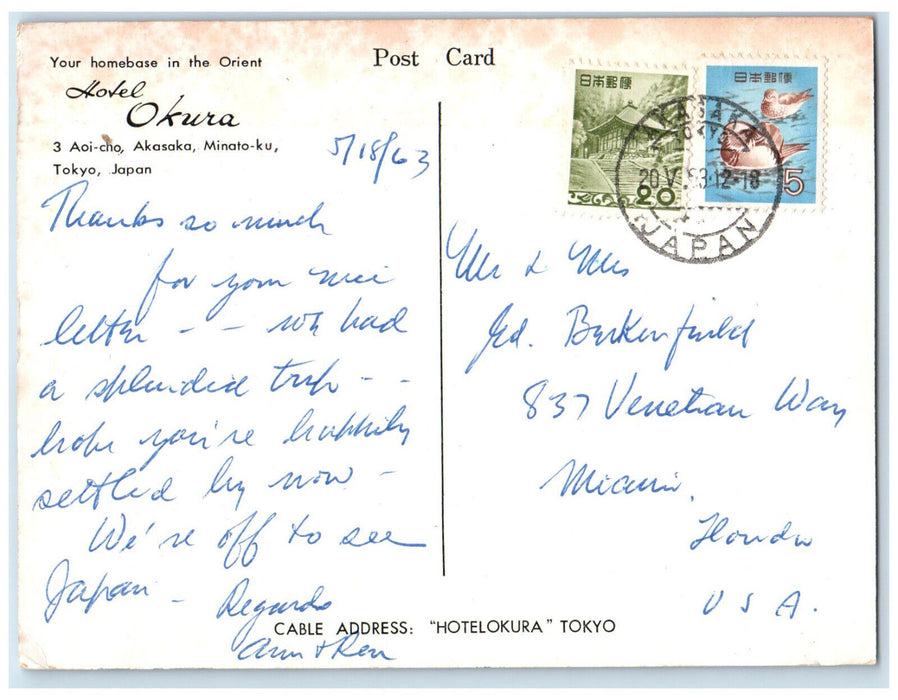 Your homebase in the Orient
Hotel
Okura
3 Aoi-cho, Akasaka, Minato-ku,
Tokyo, Japan
5/18/63
Thanks so much
for your nice
letter - - we had
a splendid trip - -
hope you're happily
settled by now -
We're off to see
Japan -
Regards
Ann & Ken
Post Card
日本郵便
20
日本郵便
5
AKASAKA
TOKYO
20.V.63.12-18
JAPAN
Mr & Mrs
Ed. Berkenfield
837 Venetian Way
Miami,
Florida
U S A.
CABLE ADDRESS: "HOTELOKURA" TOKYO